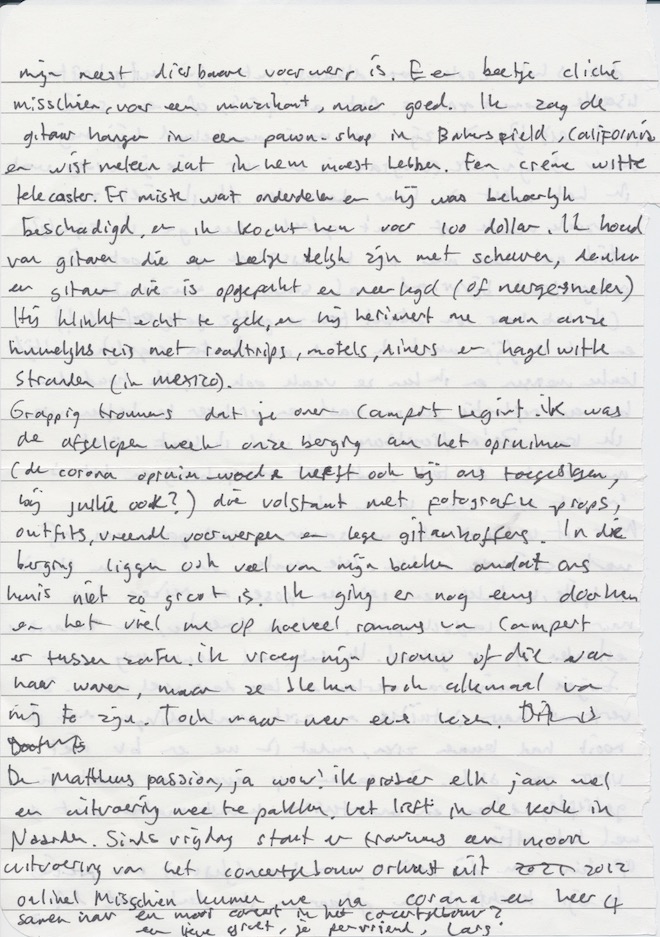 mijn meest dierbare voorwerp is. Een beetje cliché
misschien, voor een muzikant, maar goed. Ik zag de
gitaar hangen in een pawn-shop in Bakersfield, California
en wist meteen dat ik hem moest hebben. Een crème witte
telecaster. Er miste wat onderdelen en hij was behoorlijk
beschadigd, en ik kocht hem voor 100 dollar. Ik houd
van gitaren die een beetje lelijk zijn met scheuren, deuken
en gitaar die is opgepakt en neerlegd (of neergesmeten)
Hij klinkt echt te gek, en hij herinnert me aan onze
huwelijksreis met roadtrips, motels, diners en hagelwitte
stranden (in Mexico).
Grappig trouwens dat je over Campert begint. ik was
de afgelopen week onze berging aan het opruimen
(de corona opruim-woede heeft ook bij ons toegeslagen,
bij jullie ook?) die volstaat met fotografie props,
outfits, vreemde voorwerpen en lege gitaarkoffers. In die
berging liggen ook veel van mijn boeken omdat ons
huis niet zo groot is. Ik ging er nog eens doorheen
en het viel me op hoeveel romans van Campert
er tussen zaten. ik vroeg mijn vrouw of die van
haar waren, maar ze bleken toch allemaal van
mij te zijn. Toch maar weer eens lezen.
De Mattheus passion, ja wow! ik probeer elk jaar wel
een uitvoering mee te pakken, het liefst in de kerk in
Naarden. Sinds vrijdag staat er trouwens een mooie
uitvoering van het concertgebouw orkest uit 2021 2012
online! Misschien kunnen we na corona een keer
samen naar een mooi concert in het concertgebouw?
een lieve groet, je penvriend, Lars.